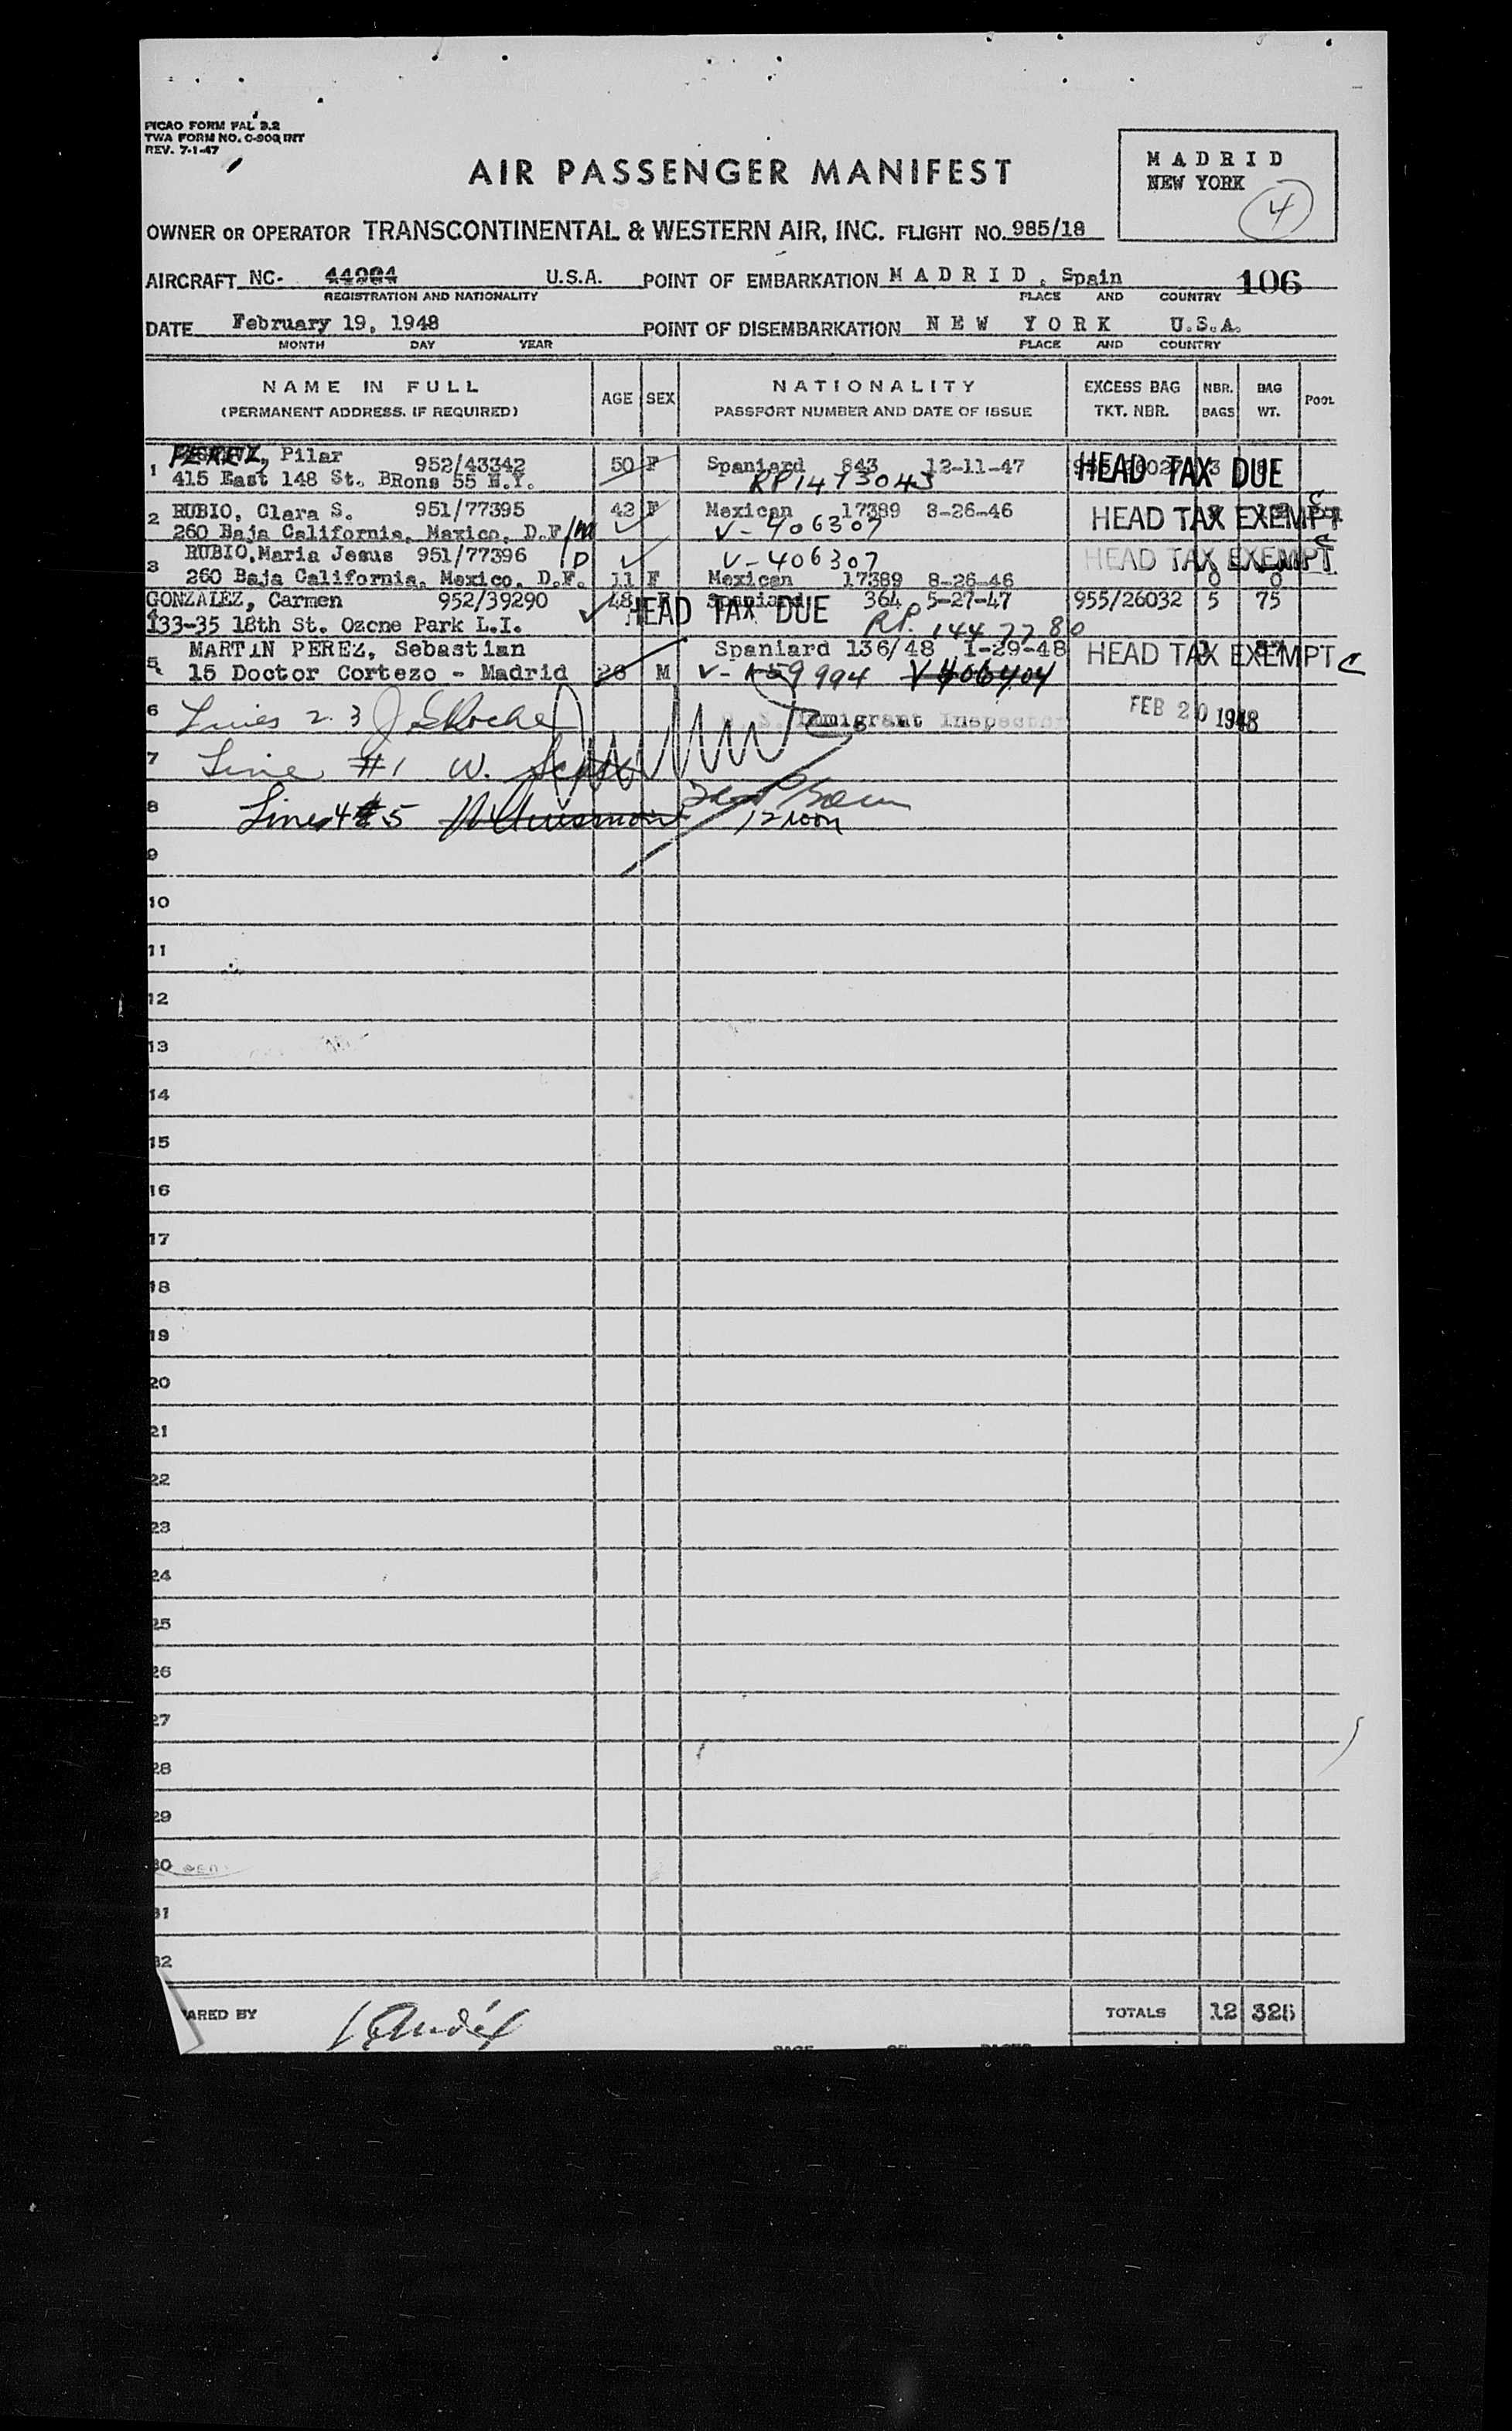 PICAO FORM FAL 3.2
TWA FORM NO. C-900 INT
REV. 7-1-47
AIR PASSENGER MANIFEST
MADRID
NEW YORK
4
OWNER OR OPERATOR TRANSCONTINENTAL & WESTERN AIR, INC. FLIGHT NO. 985/18
AIRCRAFT NC- U.S.A. POINT OF EMBARKATION MADRID, Spain 106
REGISTRATION AND NATIONALITY PLACE AND COUNTRY
DATE February 19, 1948 POINT OF DISEMBARKATION NEW YORK U.S.A.
MONTH DAY YEAR PLACE AND COUNTRY
NAME IN FULL AGE SEX NATIONALITY EXCESS BAG NBR. BAG POOL
(PERMANENT ADDRESS, IF REQUIRED) PASSPORT NUMBER AND DATE OF ISSUE TKT. NBR. BAGS WT.
1 PEREZ, Pilar 952/43342 50 F Spaniard 843 12-11-47 HEAD TAX DUE
415 East 148 St. BRons 55 N.Y. RP1473043
2 RUBIO, Clara S. 951/77395 42 F Mexican 17389 8-26-46 HEAD TAX EXEMPT C
260 Baja California, Mexico, D.F. V-406307
3 RUBIO, Maria Jesus 951/77396 V-406307 HEAD TAX EXEMPT C
260 Baja California, Mexico, D.F. 11 F Mexican 17389 8-26-46 0 0
GONZALEZ, Carmen 952/39290 48 F HEAD TAX DUE Spaniard 364 5-27-47 955/26032 5 75
4 133-35 18th St. Ozone Park L.I. RP. 1447780
MARTIN PEREZ, Sebastian Spaniard 136/48 1-29-48 HEAD TAX EXEMPT C
5 15 Doctor Cortezo - Madrid 26 M V-159994 V406404
6 Lines 2. 3 Immigrant Inspector FEB 20 1948
7 Line #1 W. Scott
8 Lines 4 & 5 12 noon
9
10
11
12
13
14
15
16
17
18
19
20
21
22
23
24
25
26
27
28
29
30
31
32
ARED BY TOTALS 12 325
PAGE OF PAGES